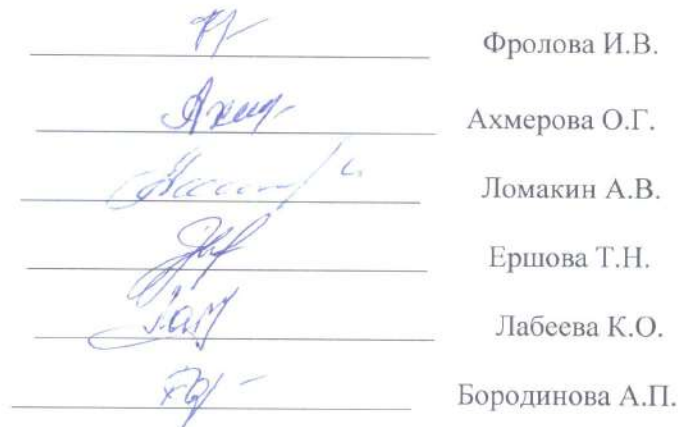 Фролова И.В.
Ахмерова О.Г.
Ломакин А.В.
Ершова Т.Н.
Лабеева К.О.
Бородинова А.П.